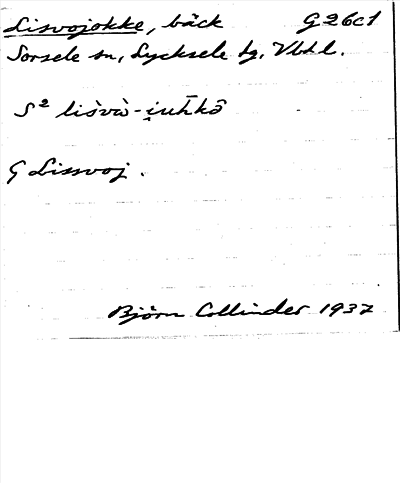 Lisvojokke, bäck G 26c1
Sorsele sn, Lycksele tg, Vbtl.
S² lisvà-
G Lisvoj.
Björn Collinder 1937